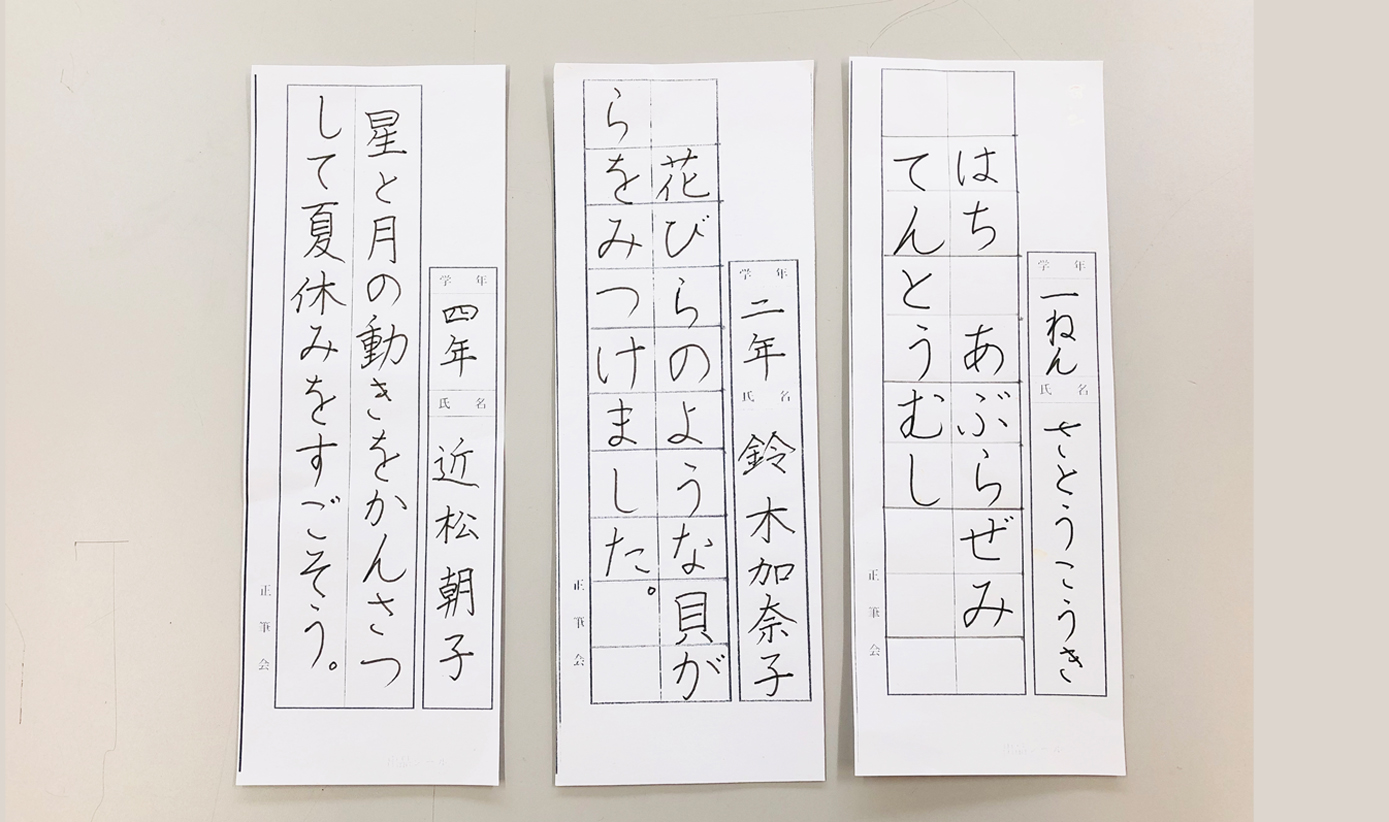 はち　あぶらぜみ
てんとうむし
学年
一ねん
氏名
さとうこうき
正筆会
花びらのような貝が
らをみつけました。
学年
二年
氏名
鈴木加奈子
正筆会
星と月の動きをかんさつ
して夏休みをすごそう。
学年
四年
氏名
近松朝子
正筆会